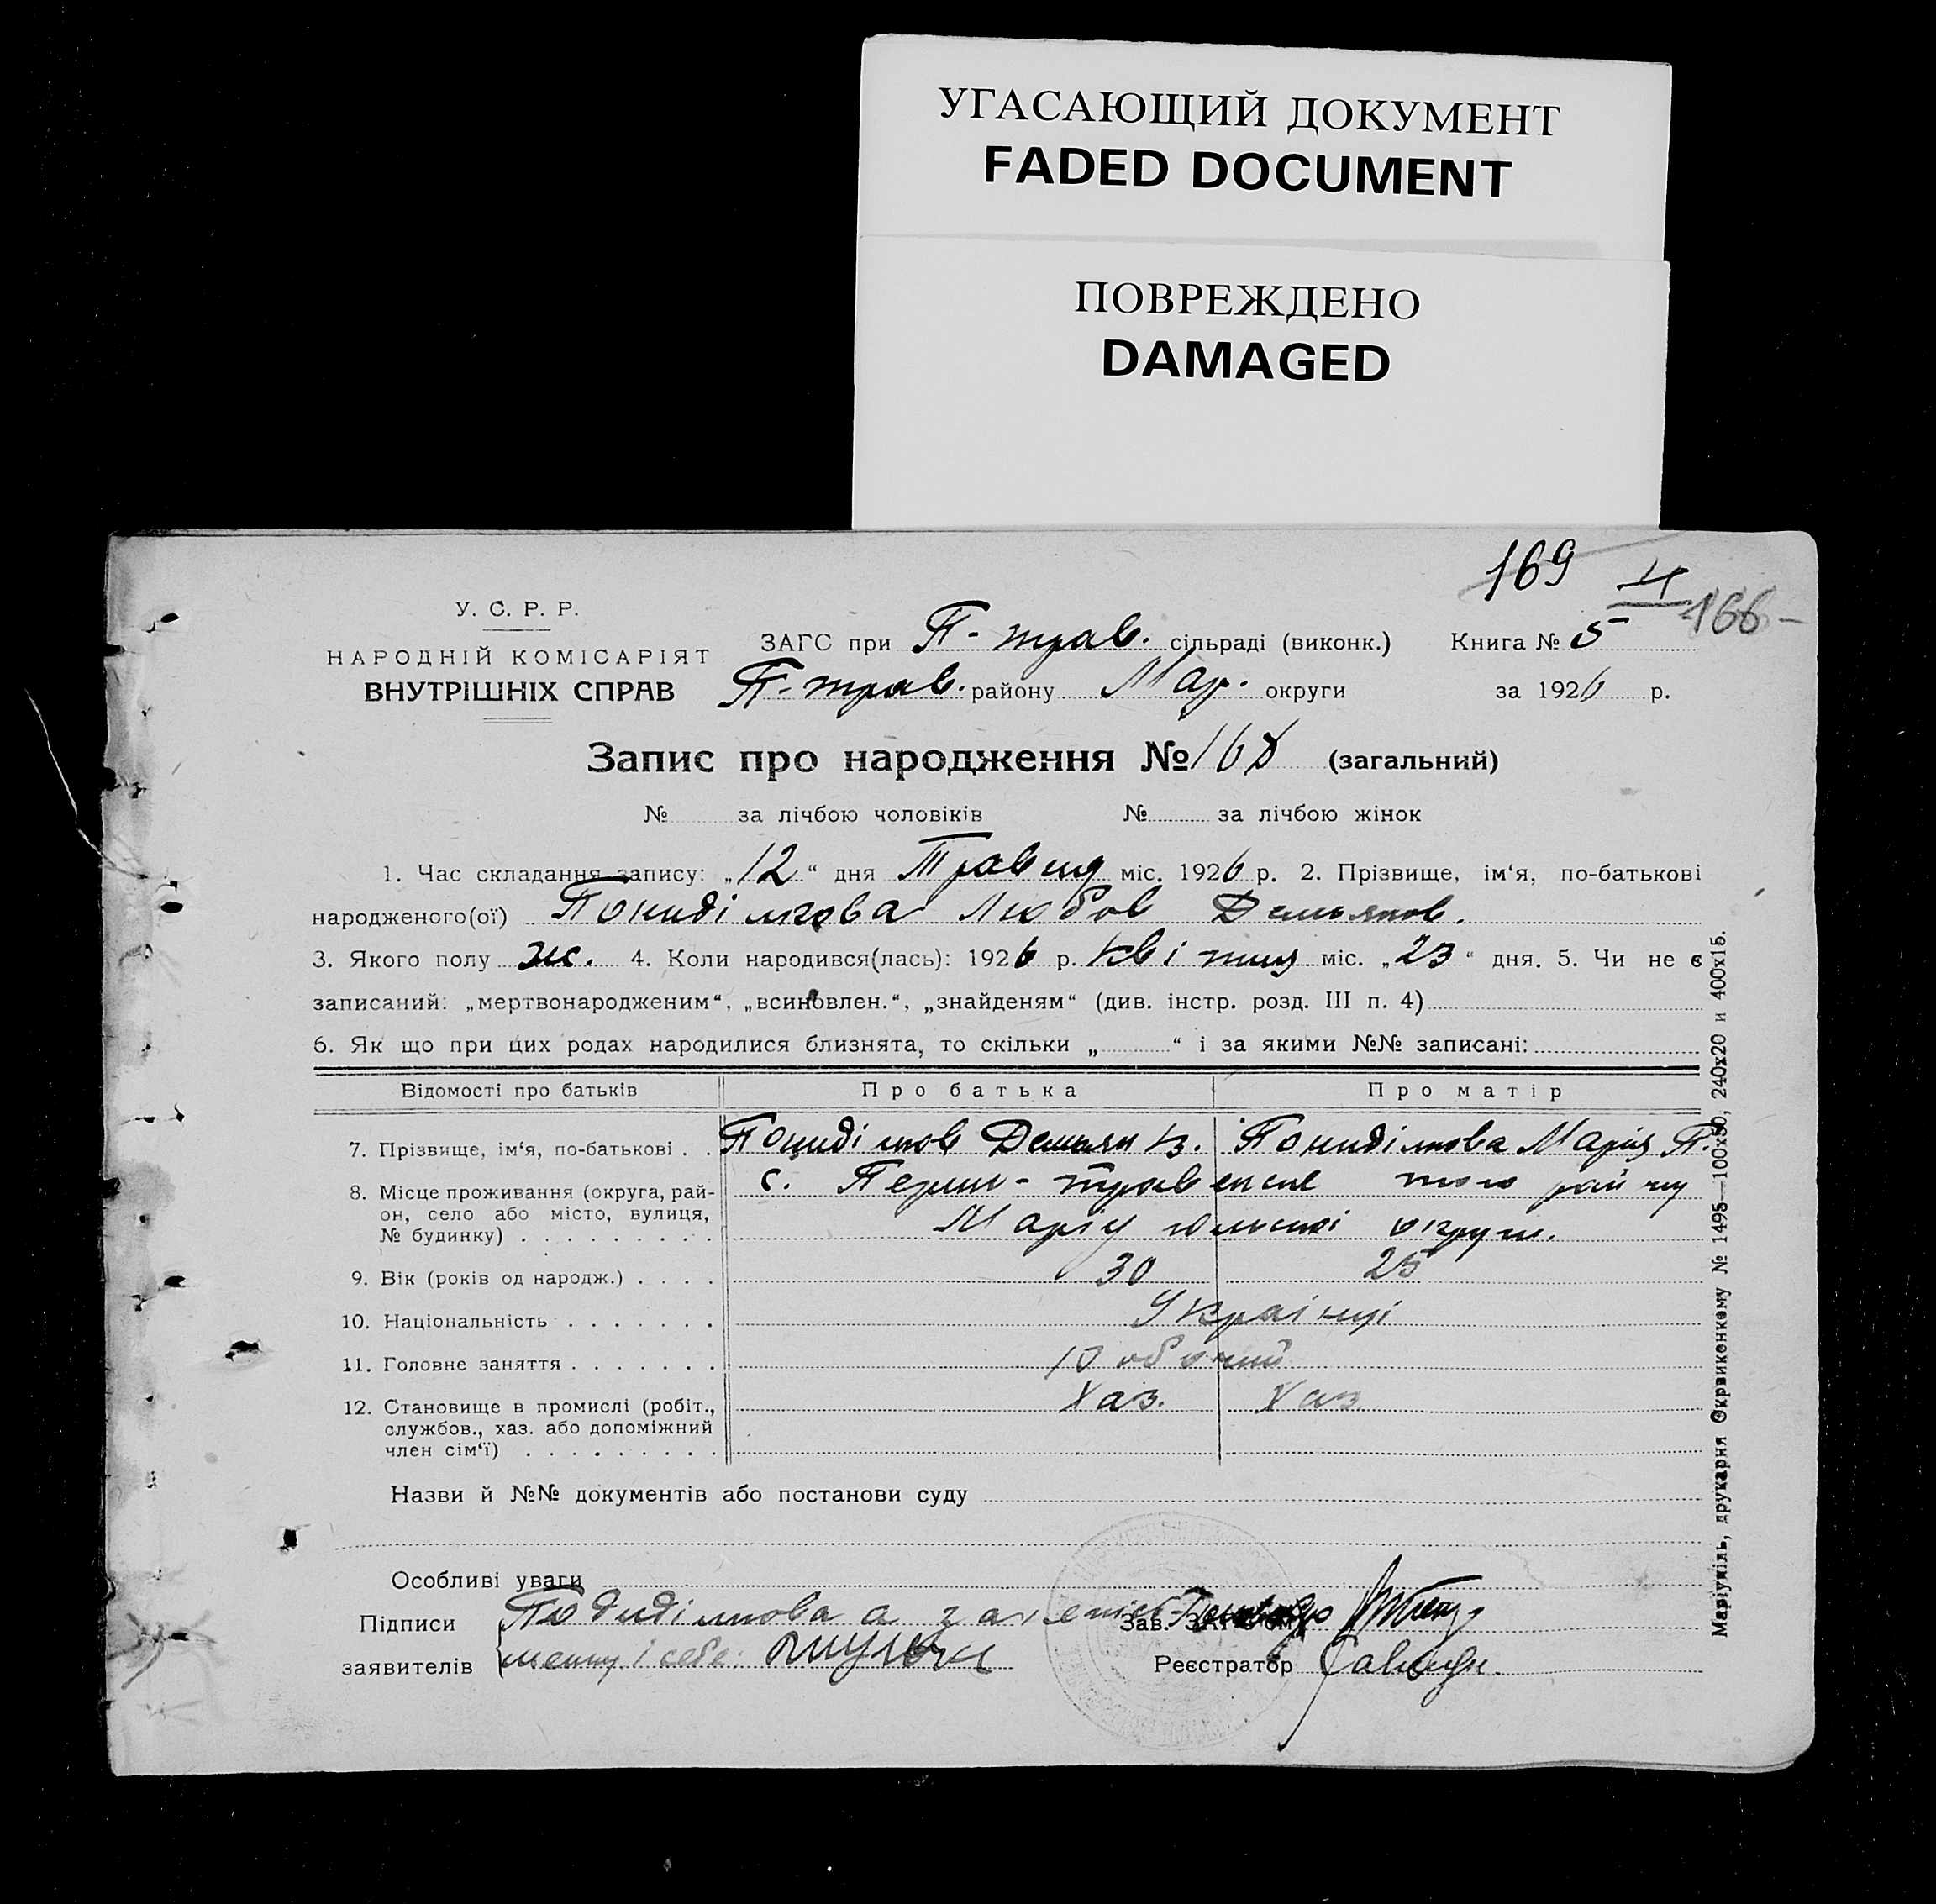 УГАСАЮЩИЙ ДОКУМЕНТ
FADED DOCUMENT
ПОВРЕЖДЕНО
DAMAGED
169
166
У. С. Р. Р.
НАРОДНІЙ КОМІСАРІЯТ
ВНУТРІШНІХ СПРАВ
ЗАГС при П-трав. сільраді (виконк.) Книга № 5
П-трав. району Мар. округи за 1926 р.
Запис про народження № 168 (загальний)
№ за лічбою чоловіків № за лічбою жінок
1. Час складання запису: „12“ дня Травця міс. 1926 р. 2. Прізвище, ім‘я, по-батькові
народженого(ої) Понидімова Любов Демьянов.
3. Якого полу ж. 4. Коли народився(лась): 1926 р. Квітня міс. „23“ дня. 5. Чи не є
записаний: „мертвонародженим“, „всиновлен.“, „знайденям“ (див. інстр. розд. III п. 4)
6. Як що при цих родах народилися близнята, то скільки „ “ і за якими №№ записані:
Відомості про батьків Про батька Про матір
7. Прізвище, ім‘я, по-батькові . . Демьян К. Марія П.
8. Місце проживання (округа, рай-
он, село або місто, вулиця,
№ будинку) . . . . . . . . .
с. Перш-травенсне того району
Маріупольскої округи.
9. Вік (років од народж.) . . . . 30 25
10. Національність . . . . . . . Українці
11. Головне заняття . . . . . . .
12. Становище в промислі (робіт.,
службов., хаз. або допоміжний
член сім‘ї) . . . . . . . . .
Хаз. Хаз.
Назви й №№ документів або постанови суду
Особливі уваги
Підписи
заявителів
Зав. ЗАГС‘ом
Реєстратор
Маріупіль, друкарня Окрвиконкому № 1495—100х50, 240х20 и 400х15.